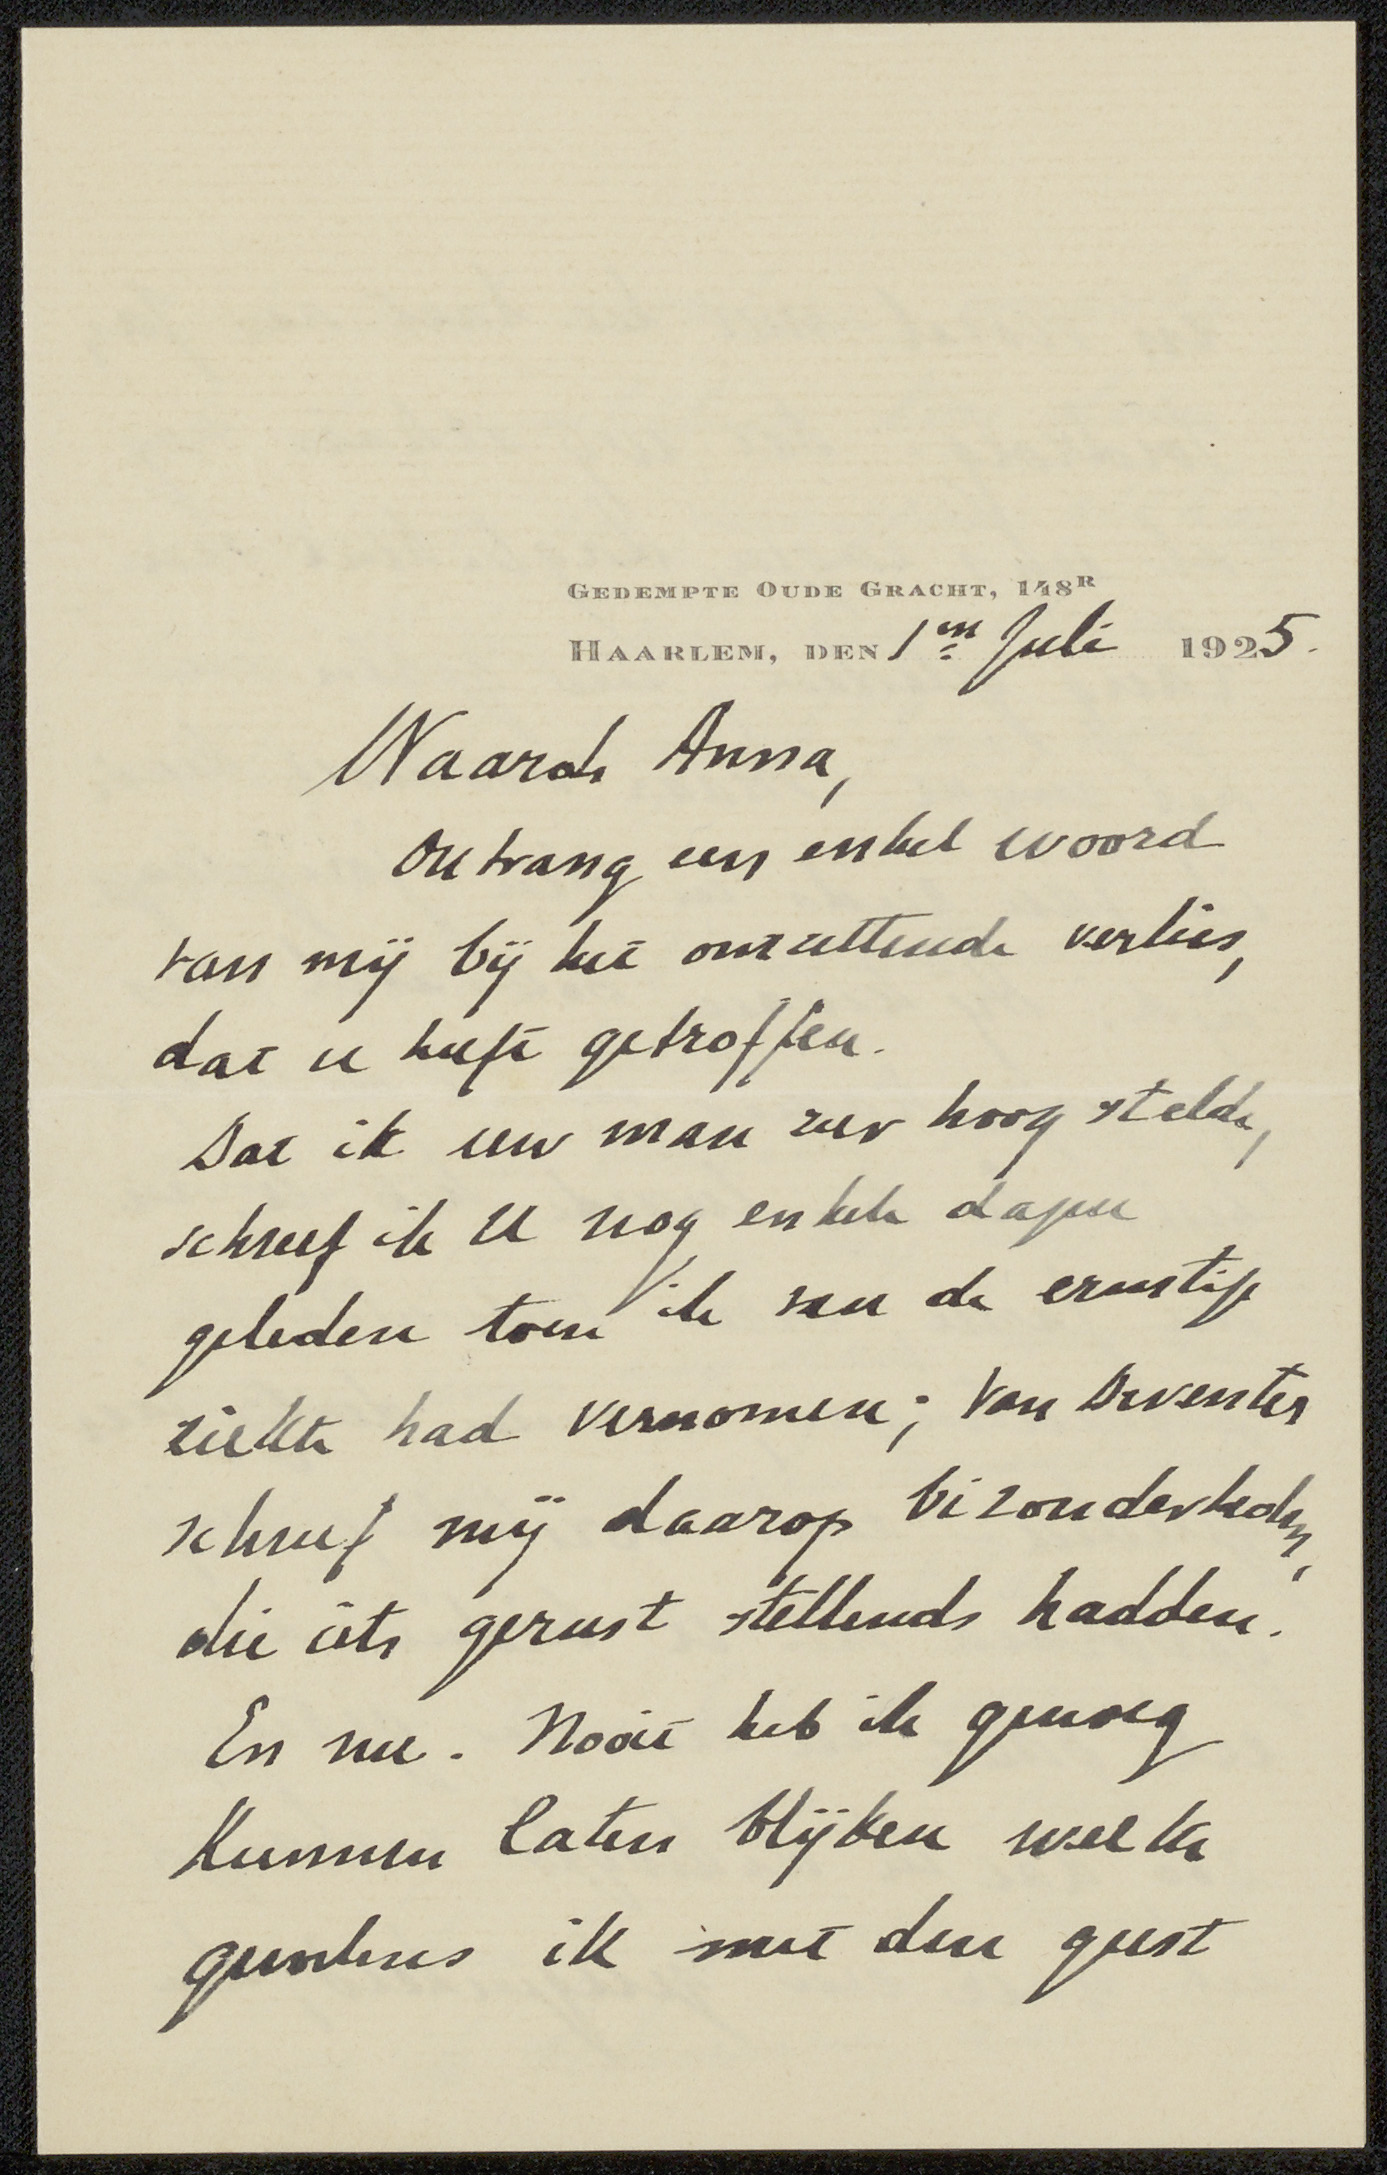 GEDEMPTE OUDE GRACHT, 148R
HAARLEM, DEN 1en Juli 1925.
Waarde Anna,
Ontvang een enkel woord
van mij bij het ontzettende verlies,
dat u heeft getroffen.
Dat ik uw man zeer hoog stelde,
schreef ik U nog enkele dagen
geleden toen ik van de ernstige
ziekte had vernomen; Van Deventer
schreef mij daarop bizonderheden,
die iets gerust stellends hadden.
En nu. Nooit heb ik genoeg
kunnen laten blijken welk
ik met den geest